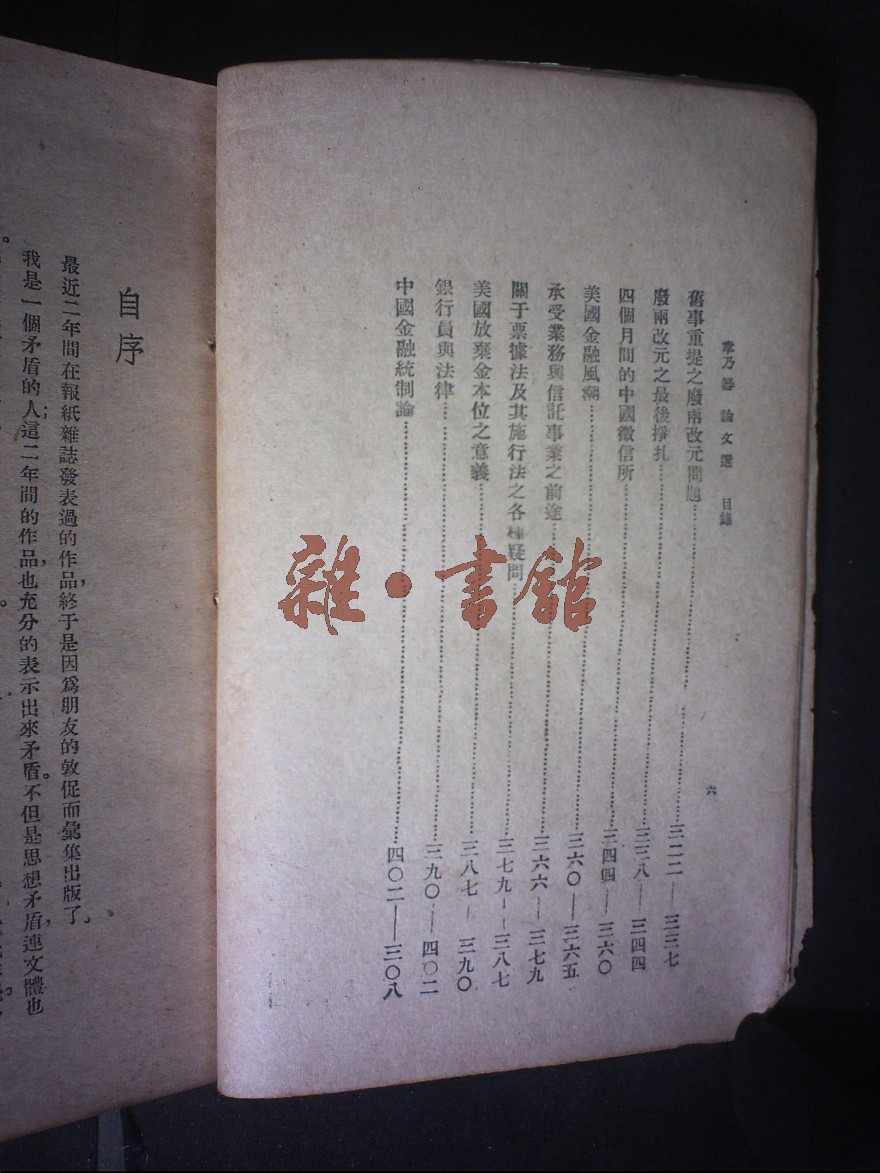 章乃器論文選　目錄
六
舊事重提之廢兩改元問題……三二二——三三七
廢兩改元之最後掙扎……三三八——三四四
四個月間的中國徵信所……三四四——三六〇
美國金融風潮……三六〇——三六五
承受業務與信託事業之前途……三六六——三七九
關于票據法及其施行法之各種疑問……三七九——三八七
美國放棄金本位之意義……三八七——三九〇
銀行員與法律……三九〇——四〇二
中國金融統制論……四〇二——三〇八
自序
最近二年間在報紙雜誌發表過的作品，終于是因爲朋友的敦促而彙集出版了。
我是一個矛盾的人；這二年間的作品，也充分的表示出來矛盾。不但是思想矛盾，連文體也
雜·書館